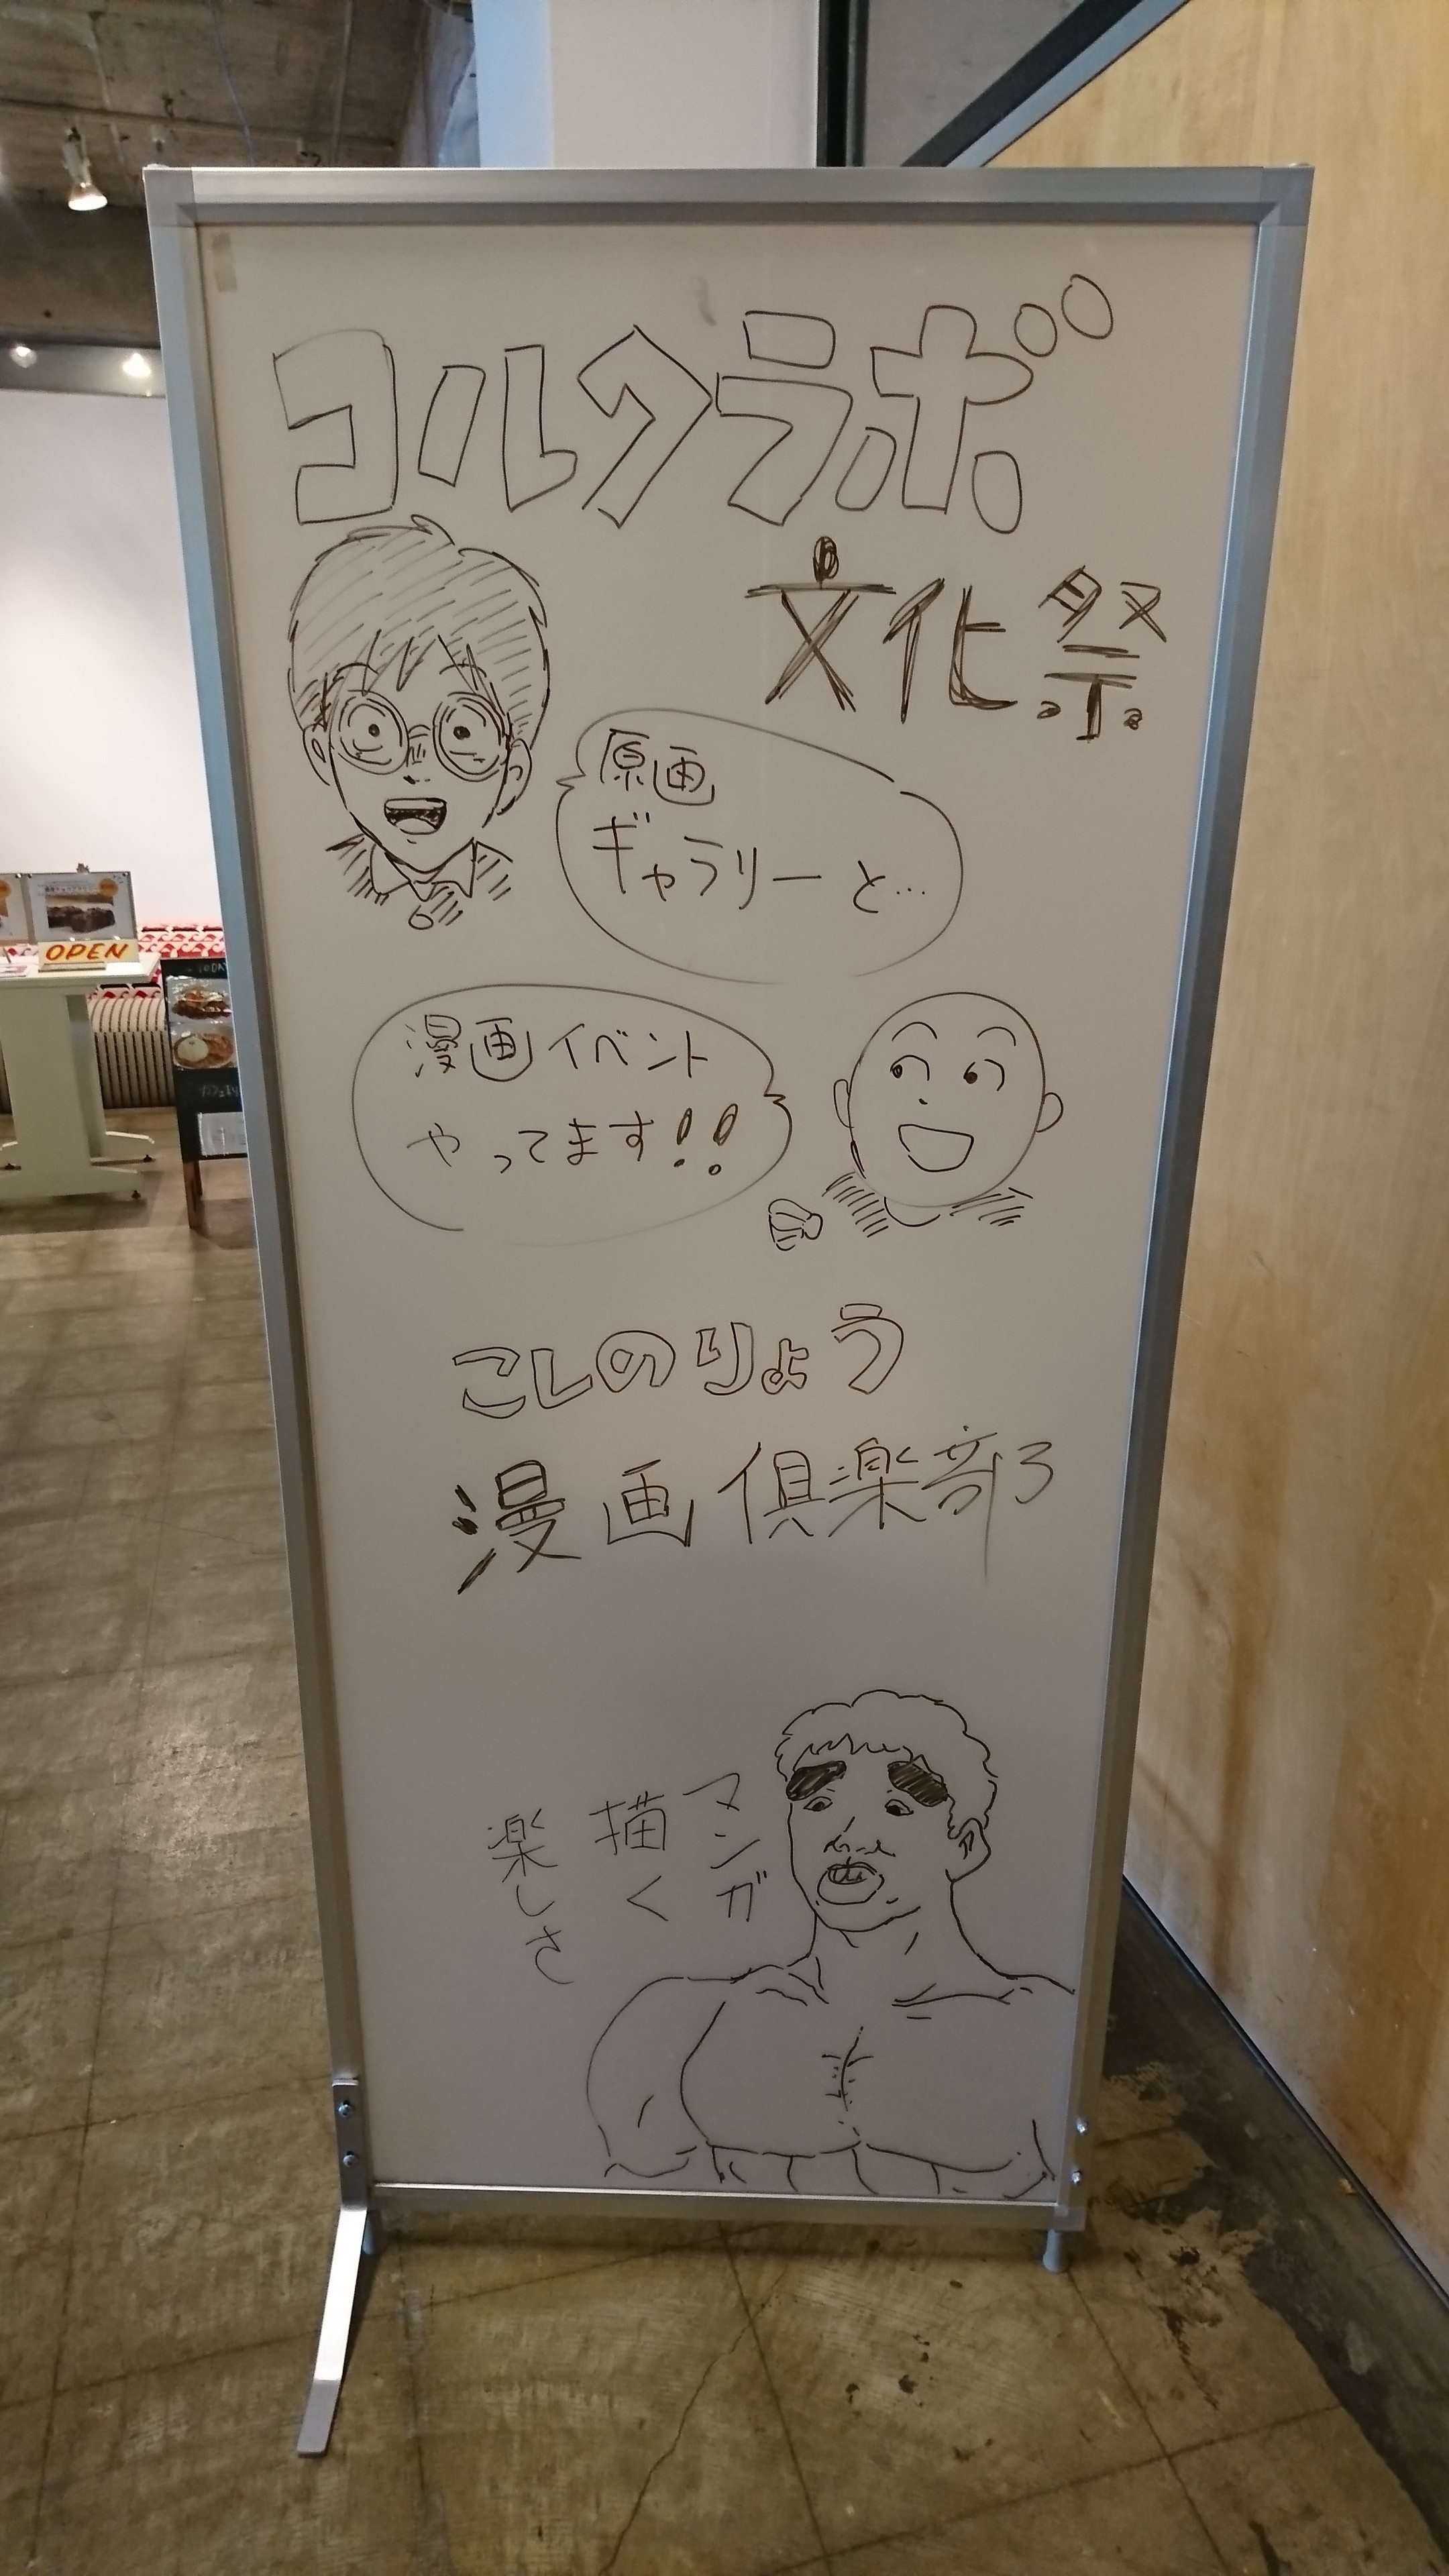 コルクラボ
文化祭
原画
ギャラリーと…
漫画イベント
やってます!!
こしのりょう
漫画倶楽部
マンガ
描く
楽しさ
OPEN